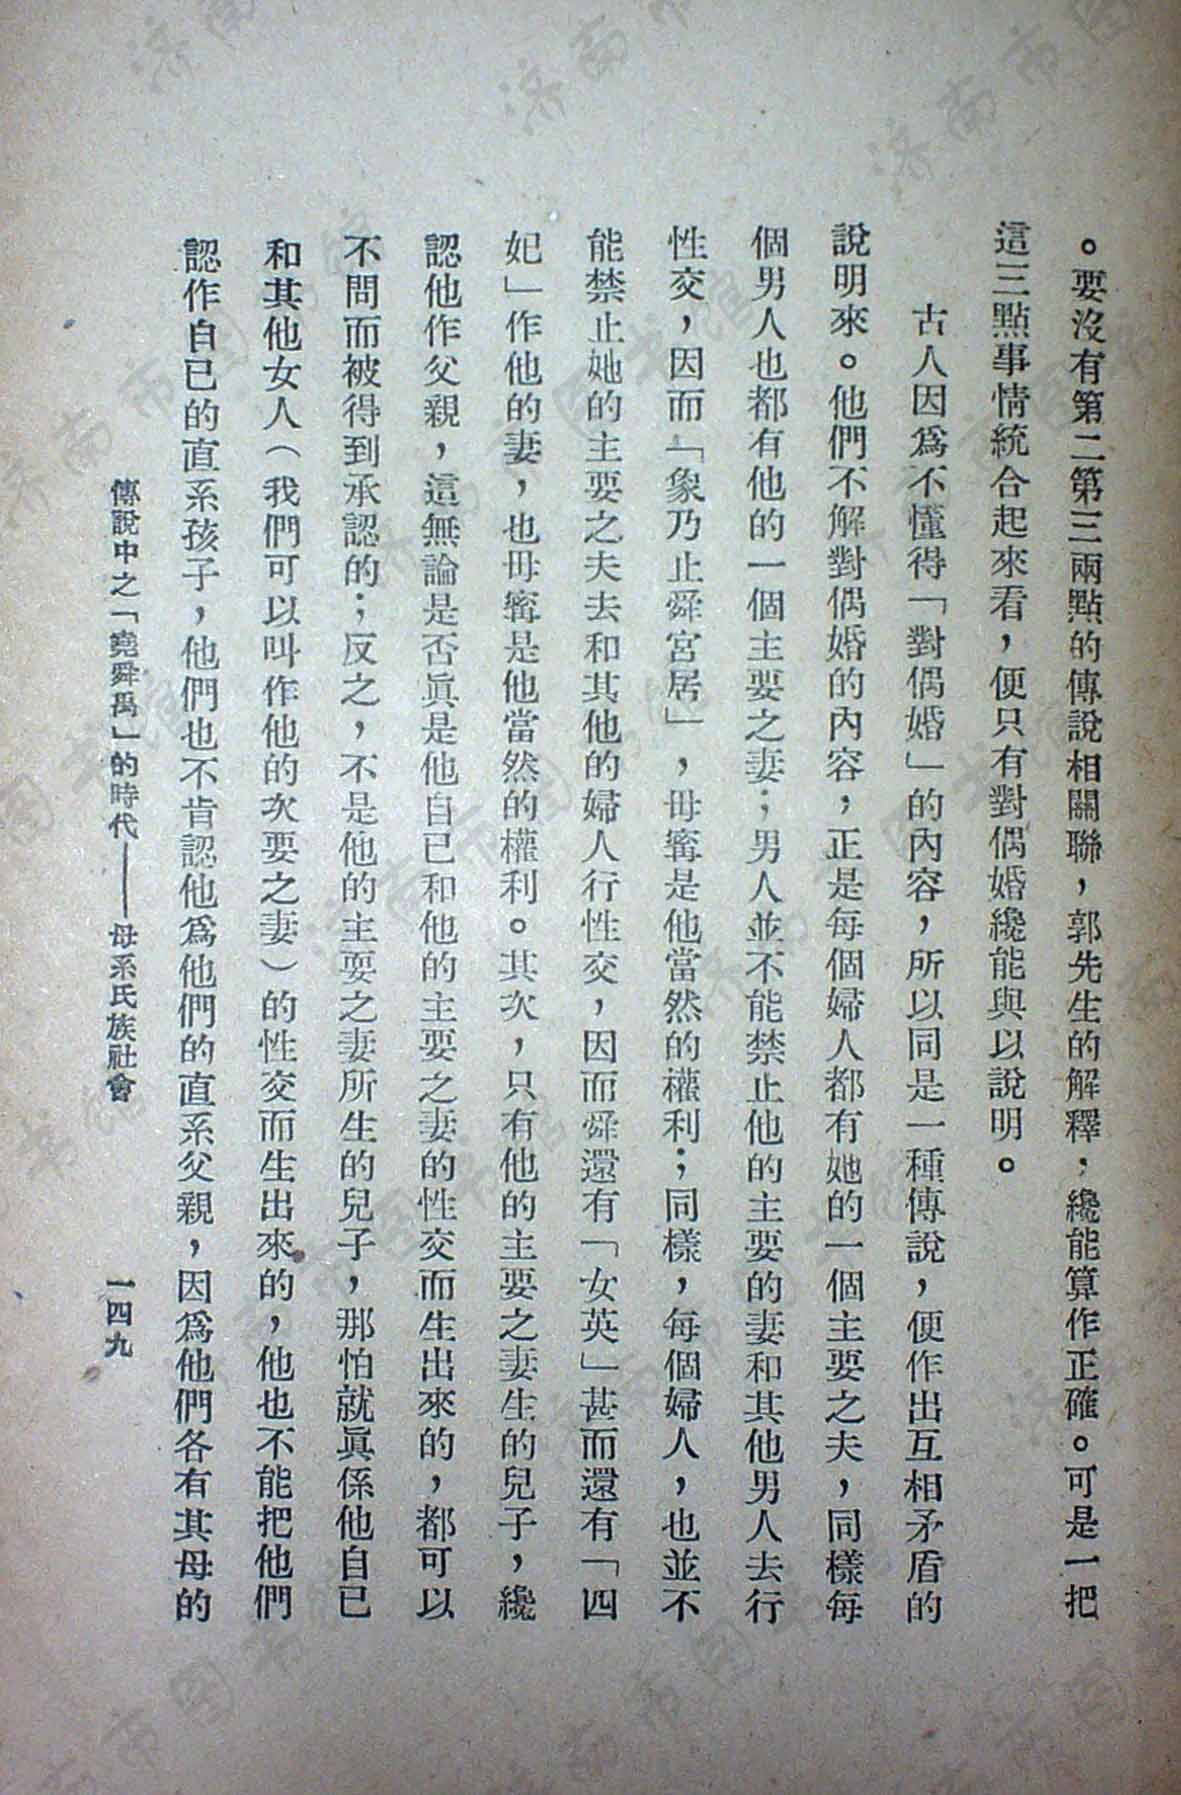 。要沒有第二第三兩點的傳說相關聯，郭先生的解釋，纔能算作正確。可是一把
這三點事情統合起來看，便只有對偶婚纔能與以說明。
古人因爲不懂得「對偶婚」的內容，所以同是一種傳說，便作出互相矛盾的
說明來。他們不解對偶婚的內容，正是每個婦人都有她的一個主要之夫，同樣每
個男人也都有他的一個主要之妻；男人並不能禁止他的主要的妻和其他男人去行
性交，因而「象乃止舜宮居」，毋寧是他當然的權利；同樣，每個婦人，也並不
能禁止她的主要之夫去和其他的婦人行性交，因而舜還有「女英」甚而還有「四
妃」作他的妻，也毋寧是他當然的權利。其次，只有他的主要之妻生的兒子，纔
認他作父親，這無論是否眞是他自己和他的主要之妻的性交而生出來的，都可以
不問而被得到承認的；反之，不是他的主要之妻所生的兒子，那怕就眞係他自己
和其他女人（我們可以叫作他的次要之妻）的性交而生出來的，他也不能把他們
認作自己的直系孩子，他們也不肯認他爲他們的直系父親，因爲他們各有其母的
傳說中之「堯舜禹」的時代——母系氏族社會
一四九
濟南市图书馆